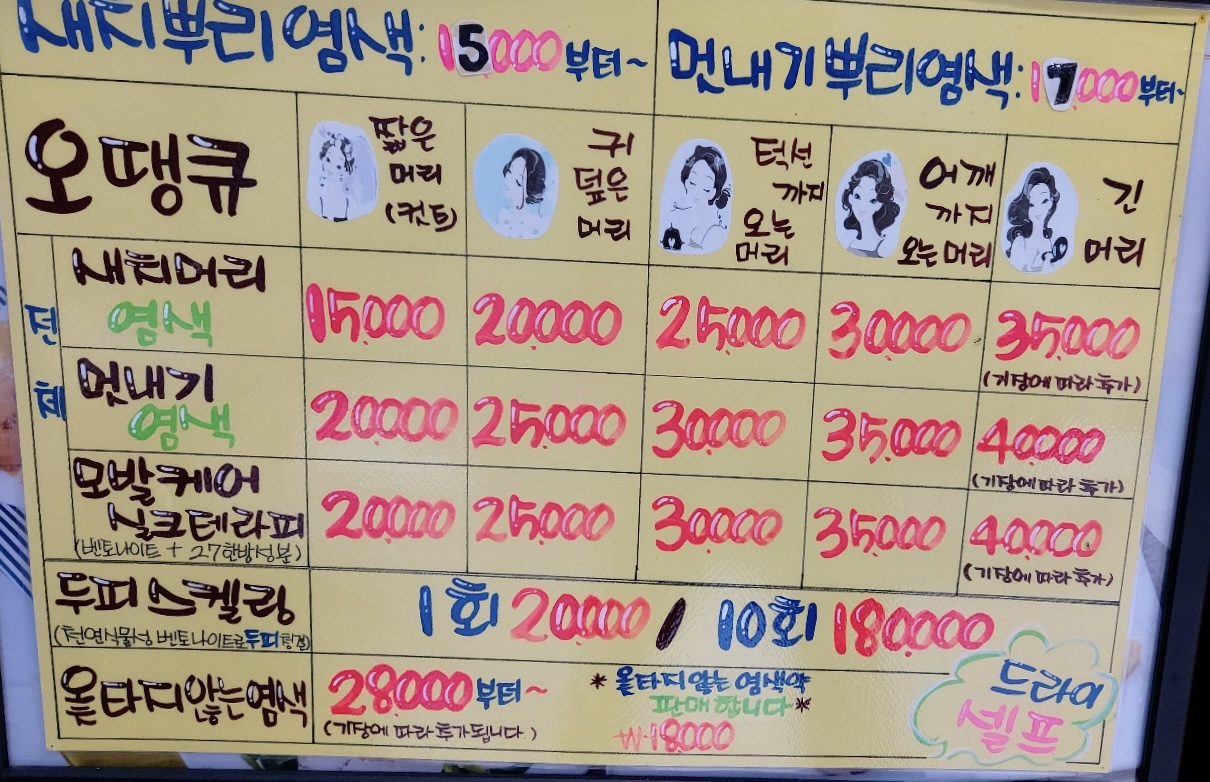 새치뿌리염색: 15000부터~
멋내기뿌리염색: 17000부터~
오땡큐
짧은
머리
(컷트)
귀
덮은
머리
턱선
까지
오는
머리
어깨
까지
오는머리
긴
머리
전
체
새치머리
염색
15.000
20.000
25.000
30.000
35.000
(기장에 따라 추가)
멋내기
염색
20.000
25.000
30.000
35.000
40.000
(기장에 따라 추가)
모발케어
실크테라피
(벤토나이트 + 27한방성분)
20.000
25.000
30.000
35.000
40.000
(기장에 따라 추가)
두피스켈링
(천연식물성 벤토나이트로 두피청결)
1회 20.000 / 10회 180.000
옻타지않는염색
28.000부터~
(기장에 따라 추가됩니다)
* 옻타지않는 염색약
판매합니다*
₩18000
드라이
셀프